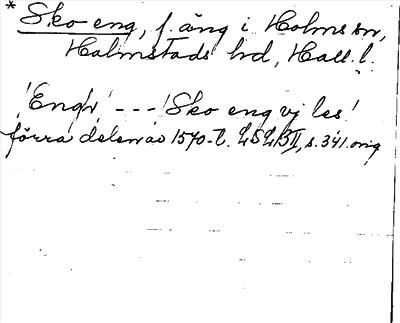 * Sko eng, f. äng i Holms sn,
Halmstads hd, Hall. l.
'Engh' --- 'Sko eng vj les'
förra delen av 1570-t. LSLB II, s. 341. orig.